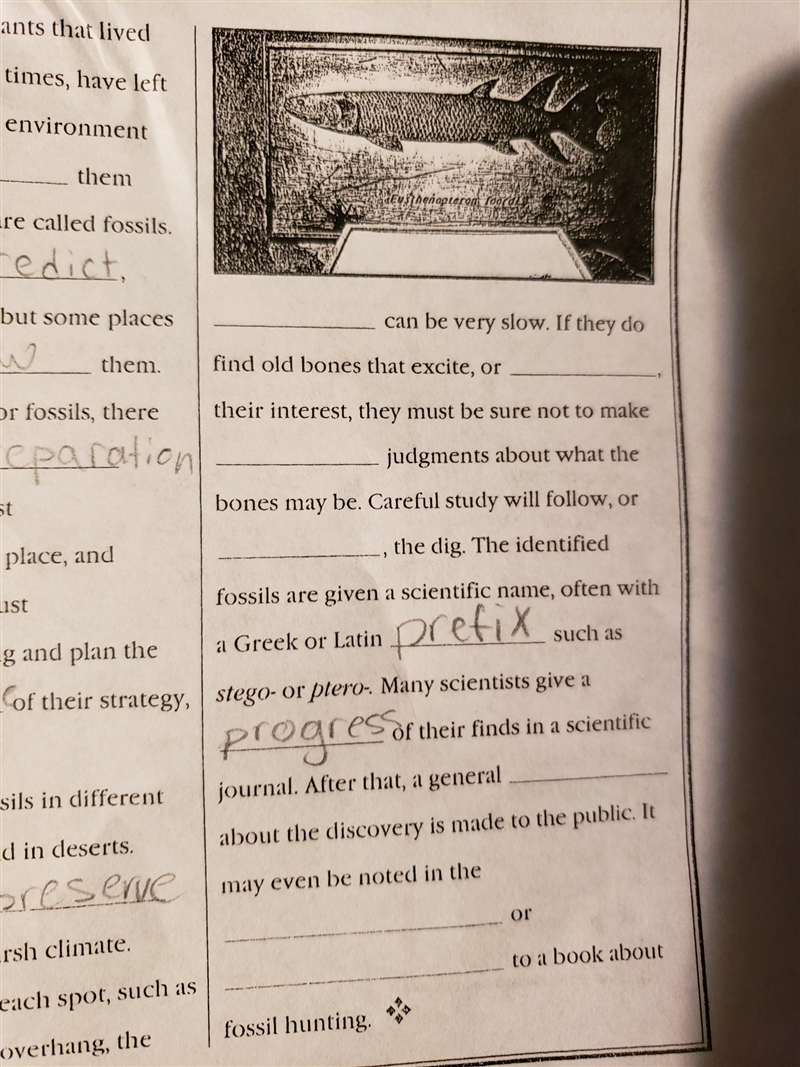 ants that lived
times, have left
environment
______ them
are called fossils.
redict,
but some places
w______ them.
or fossils, there
eparation
st
place, and
ust
g and plan the
of their strategy,
sils in different
d in deserts.
preserve
rsh climate.
each spot, such as
overhang, the
Eusthenopteron foordi
______ can be very slow. If they do
find old bones that excite, or ______,
their interest, they must be sure not to make
______ judgments about what the
bones may be. Careful study will follow, or
______, the dig. The identified
fossils are given a scientific name, often with
a Greek or Latin prefix such as
stego- or ptero-. Many scientists give a
progress of their finds in a scientific
journal. After that, a general ______
about the discovery is made to the public. It
may even be noted in the
______ or
______ to a book about
fossil hunting.